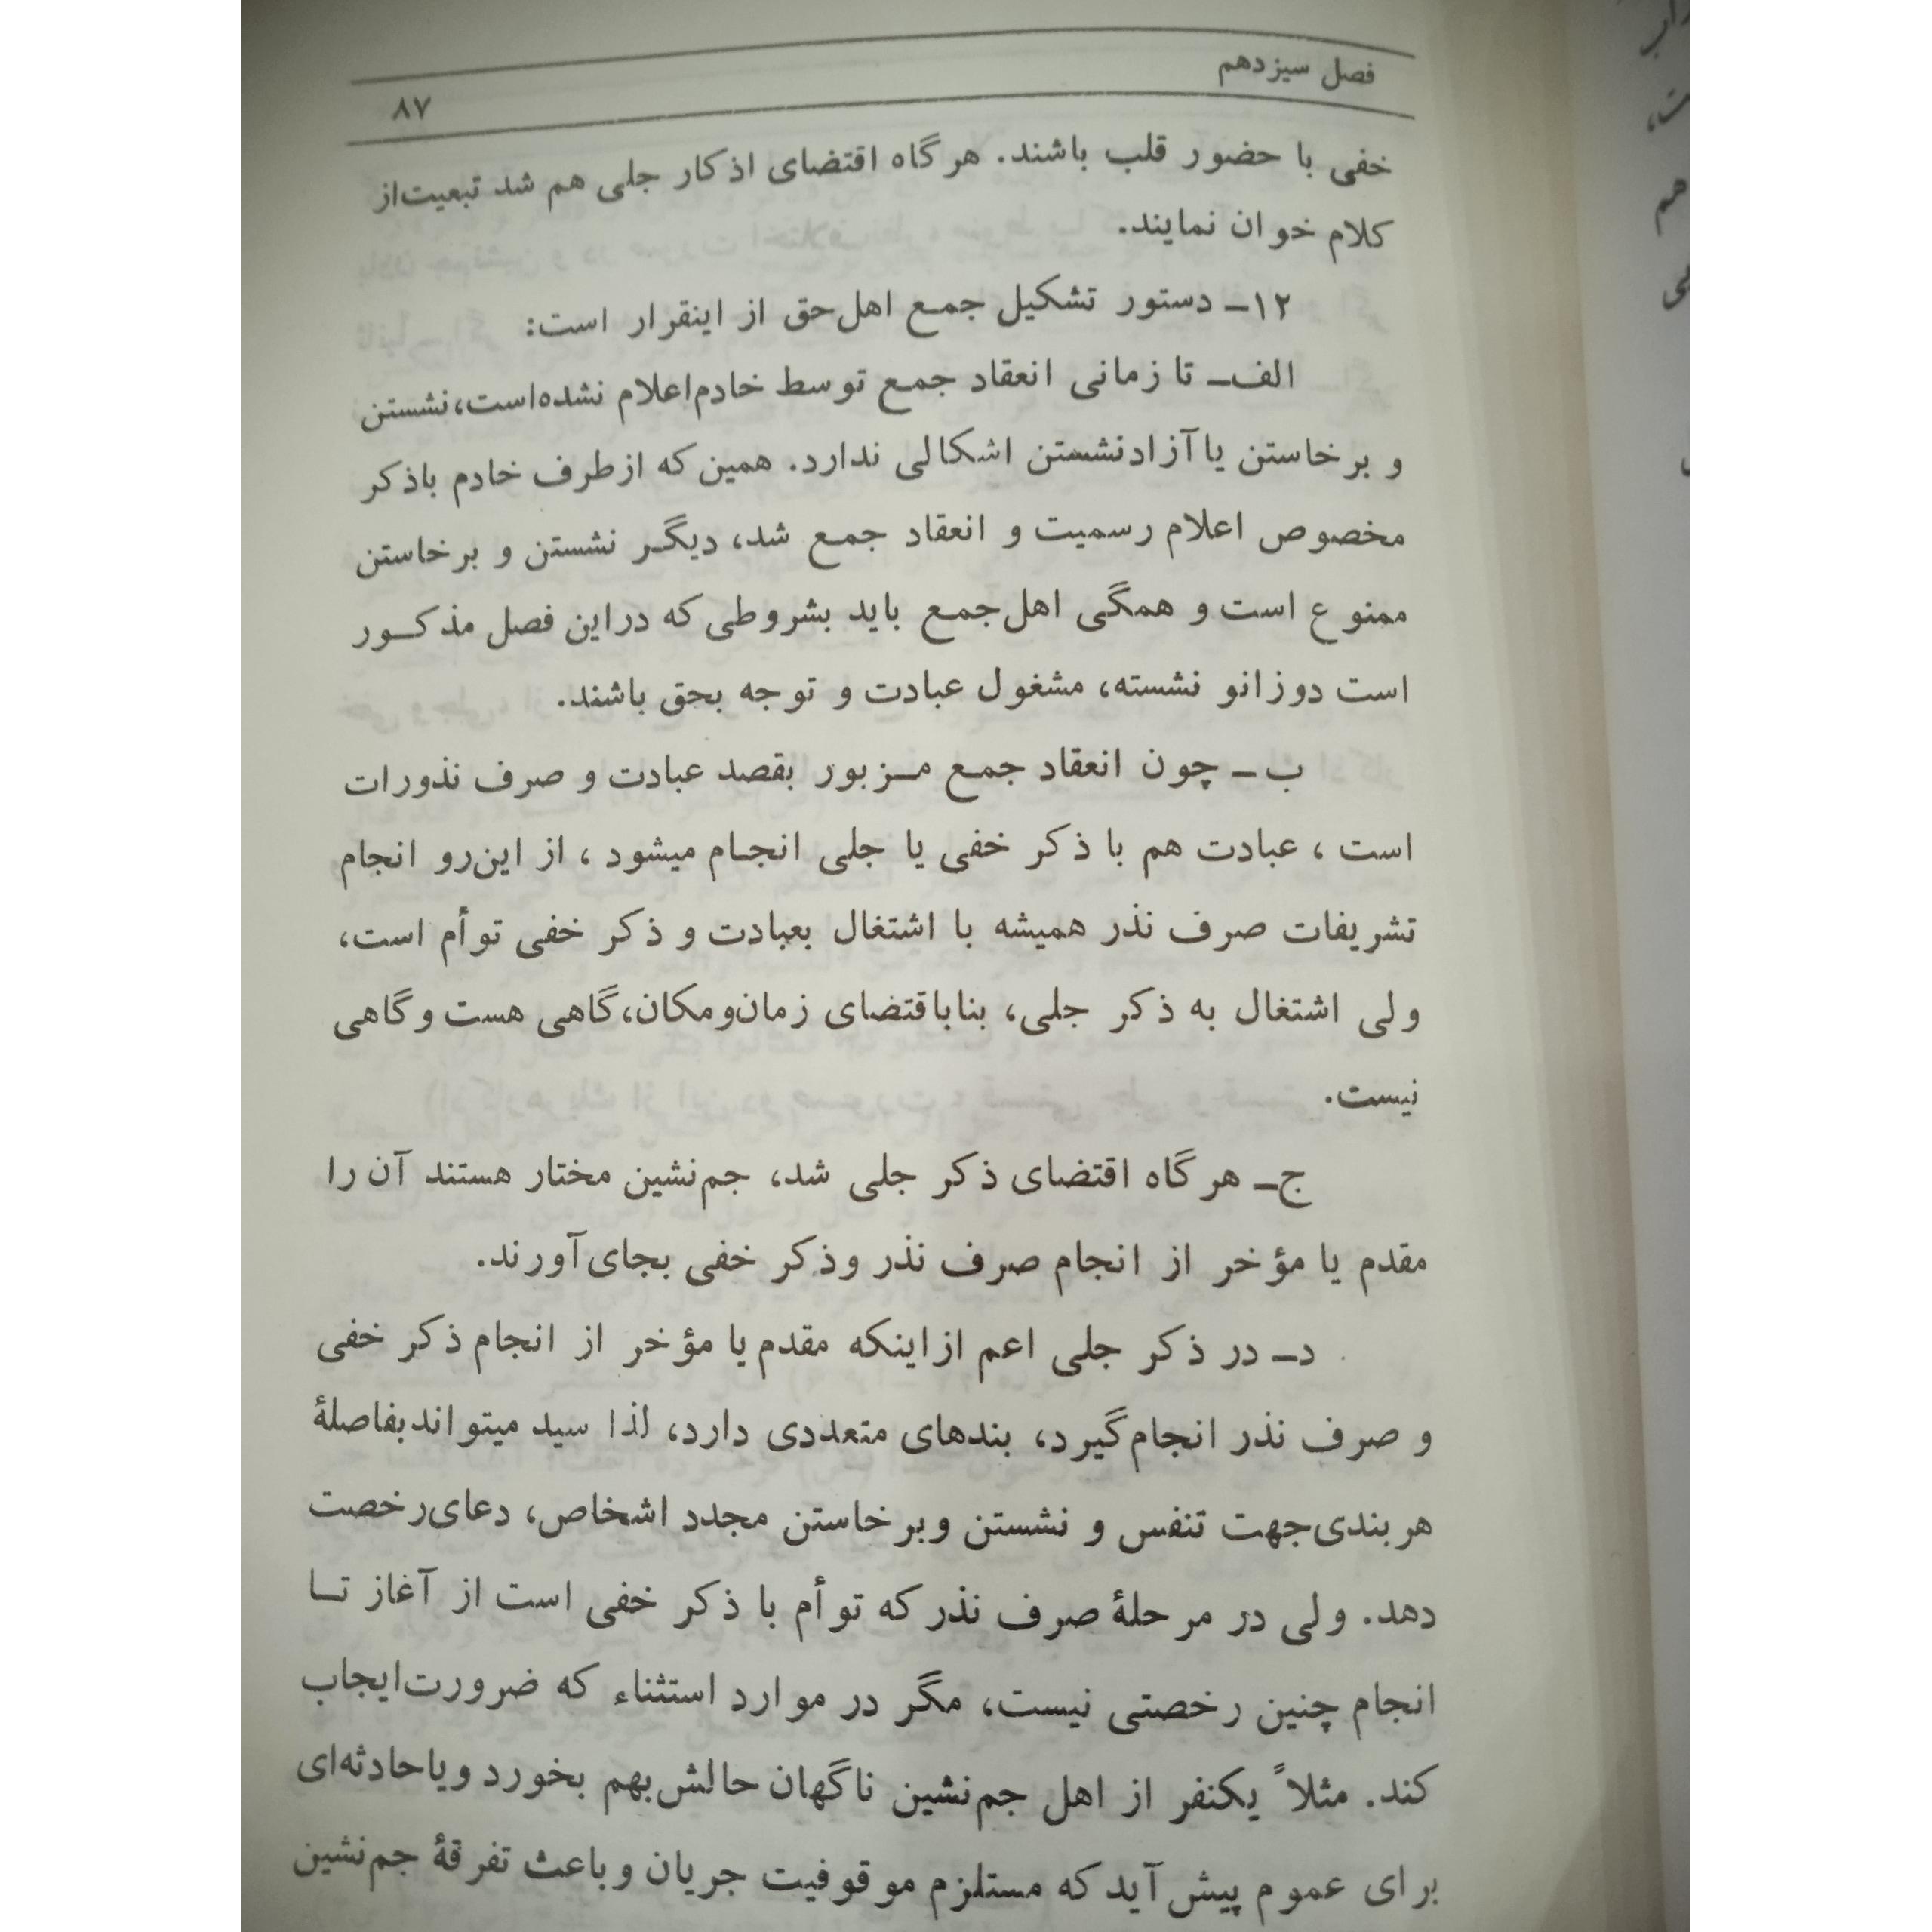 فصل سیزدهم
۸۷
خفی با حضور قلب باشند. هرگاه اقتضای اذکار جلی هم شد تبعیت از
کلام خوان نمایند.
۱۲ـ دستور تشکیل جمع اهل‌حق از اینقرار است:
الف‌ـ تا زمانی انعقاد جمع توسط خادم اعلام نشده‌است، نشستن
و برخاستن یا آزاد نشستن اشکالی ندارد. همین که از طرف خادم باذکر
مخصوص اعلام رسمیت و انعقاد جمع شد، دیگر نشستن و برخاستن
ممنوع است و همگی اهل‌جمع باید بشروطی که در این فصل مذکور
است دوزانو نشسته، مشغول عبادت و توجه بحق باشند.
ب ـ چون انعقاد جمع مزبور بقصد عبادت و صرف نذورات
است ، عبادت هم با ذکر خفی یا جلی انجام میشود ، از این‌رو انجام
تشریفات صرف نذر همیشه با اشتغال بعبادت و ذکر خفی توأم است،
ولی اشتغال به ذکر جلی، بناباقتضای زمان‌ومکان، گاهی هست و گاهی
نیست.
ج‌ـ هرگاه اقتضای ذکر جلی شد، جم‌نشین مختار هستند آن را
مقدم یا مؤخر از انجام صرف نذر و ذکر خفی بجای آورند.
د‌ـ در ذکر جلی اعم از اینکه مقدم یا مؤخر از انجام ذکر خفی
و صرف نذر انجام گیرد، بندهای متعددی دارد، لذا سید میتواند بفاصلهٔ
هر بندی جهت تنفس و نشستن و برخاستن مجدد اشخاص، دعای رخصت
دهد. ولی در مرحلهٔ صرف نذر که توأم با ذکر خفی است از آغاز تا
انجام چنین رخصتی نیست، مگر در موارد استثناء که ضرورت ایجاب
کند. مثلاً یکنفر از اهل جم‌نشین ناگهان حالش بهم بخورد و یا حادثه‌ای
برای عموم پیش آید که مستلزم موقوفیت جریان و باعث تفرقهٔ جم‌نشین